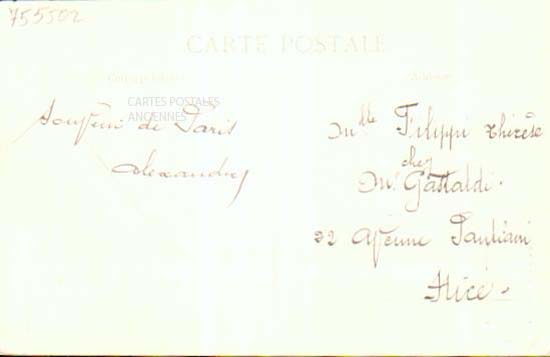 755502
CARTE POSTALE
Correspondance
Adresse
CARTES POSTALES
ANCIENNES
Souvenir de Paris
Alexandre
Mlle Filippi thérèse
chez
Mr Gastaldi.
22 Avenue
Nice.